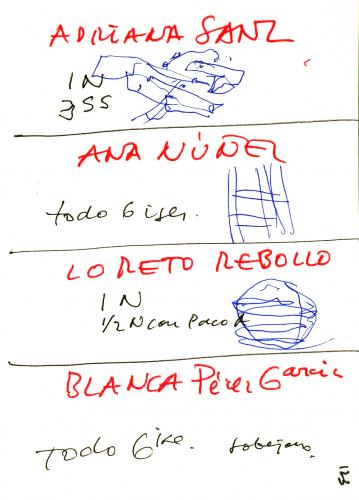 ADRIANA SANZ
1 N
3 SS
ANA NÚÑEZ
todo Giser.
LORETO REBOLLO
1 N
1/2 N con Paco A
BLANCA Pérez Garcia
TODO Gise.